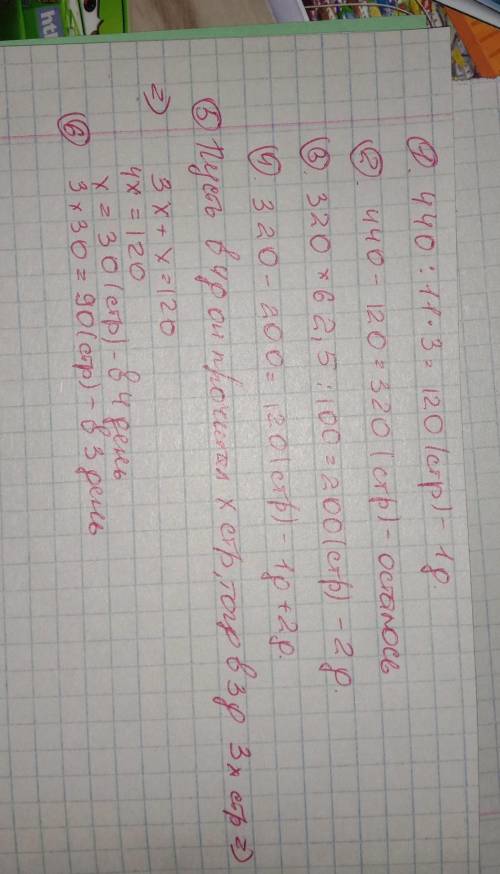 1. 440 : 11 · 3 = 120 (стр) - 1 д.
2. 440 - 120 = 320 (стр) - осталось
3. 320 × 62,5 : 100 = 200 (стр) - 2 д.
4) 320 - 200 = 120 (стр) - 1д + 2д.
5) Пусть в 4д он прочитал x стр, тогд в 3д 3x стр =>
=> 3x + x = 120
4x = 120
x = 30 (стр) - в 4 день
6) 3 × 30 = 90 (стр) - в 3 день
htt